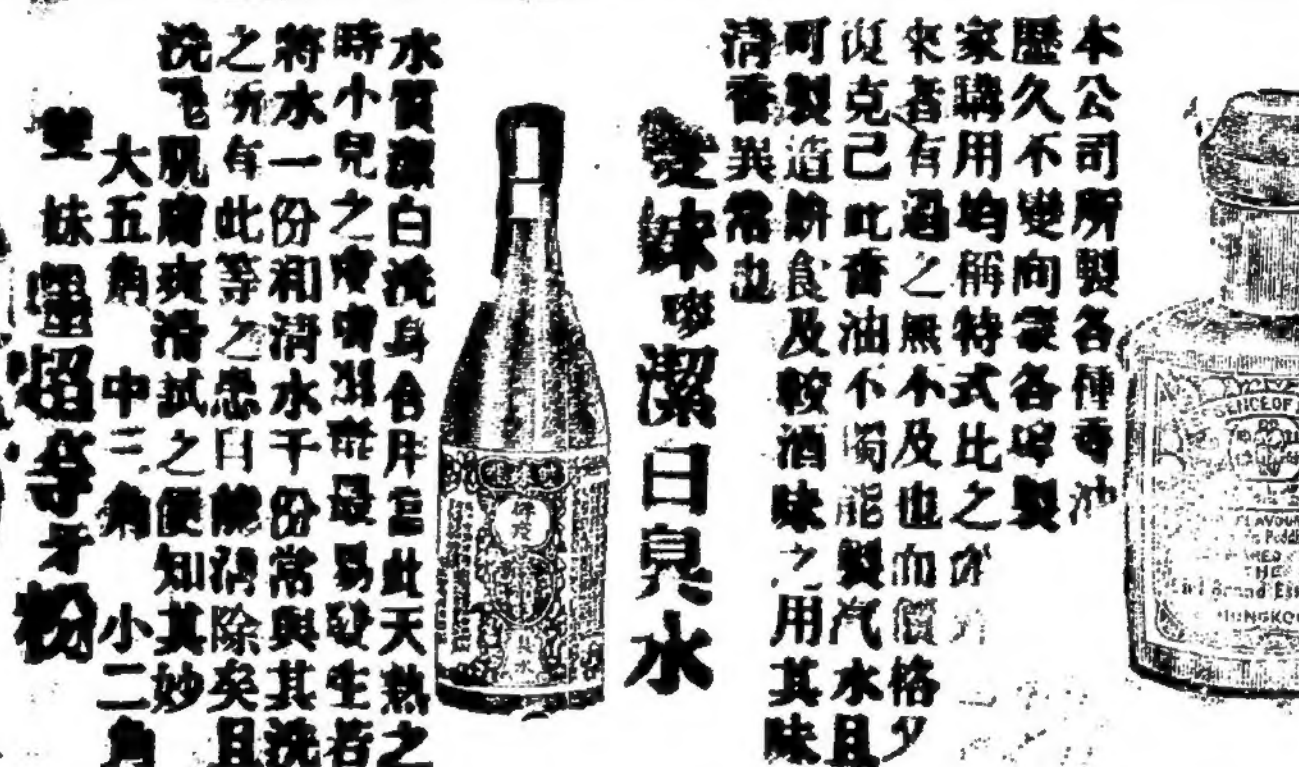 本公司所製各種香油
歷久不變向蒙各埠製
家購用均稱特式比之外
來者有過之無不及也而價格又
復克己此香油不獨能製汽水且
可製造餅食及較酒味之用其味
清香異常也
雙妹嘜潔白臭水
水質潔白洗身合用當此天熱之
時小兒之皮膚最易發生若
將水一份和清水千份常與其洗
之所有此等之患自能清除矣且
洗完肌膚爽滑試之便知其妙
大五角 中三角 小二角
雙妹嘜超等牙粉
臭水
THE